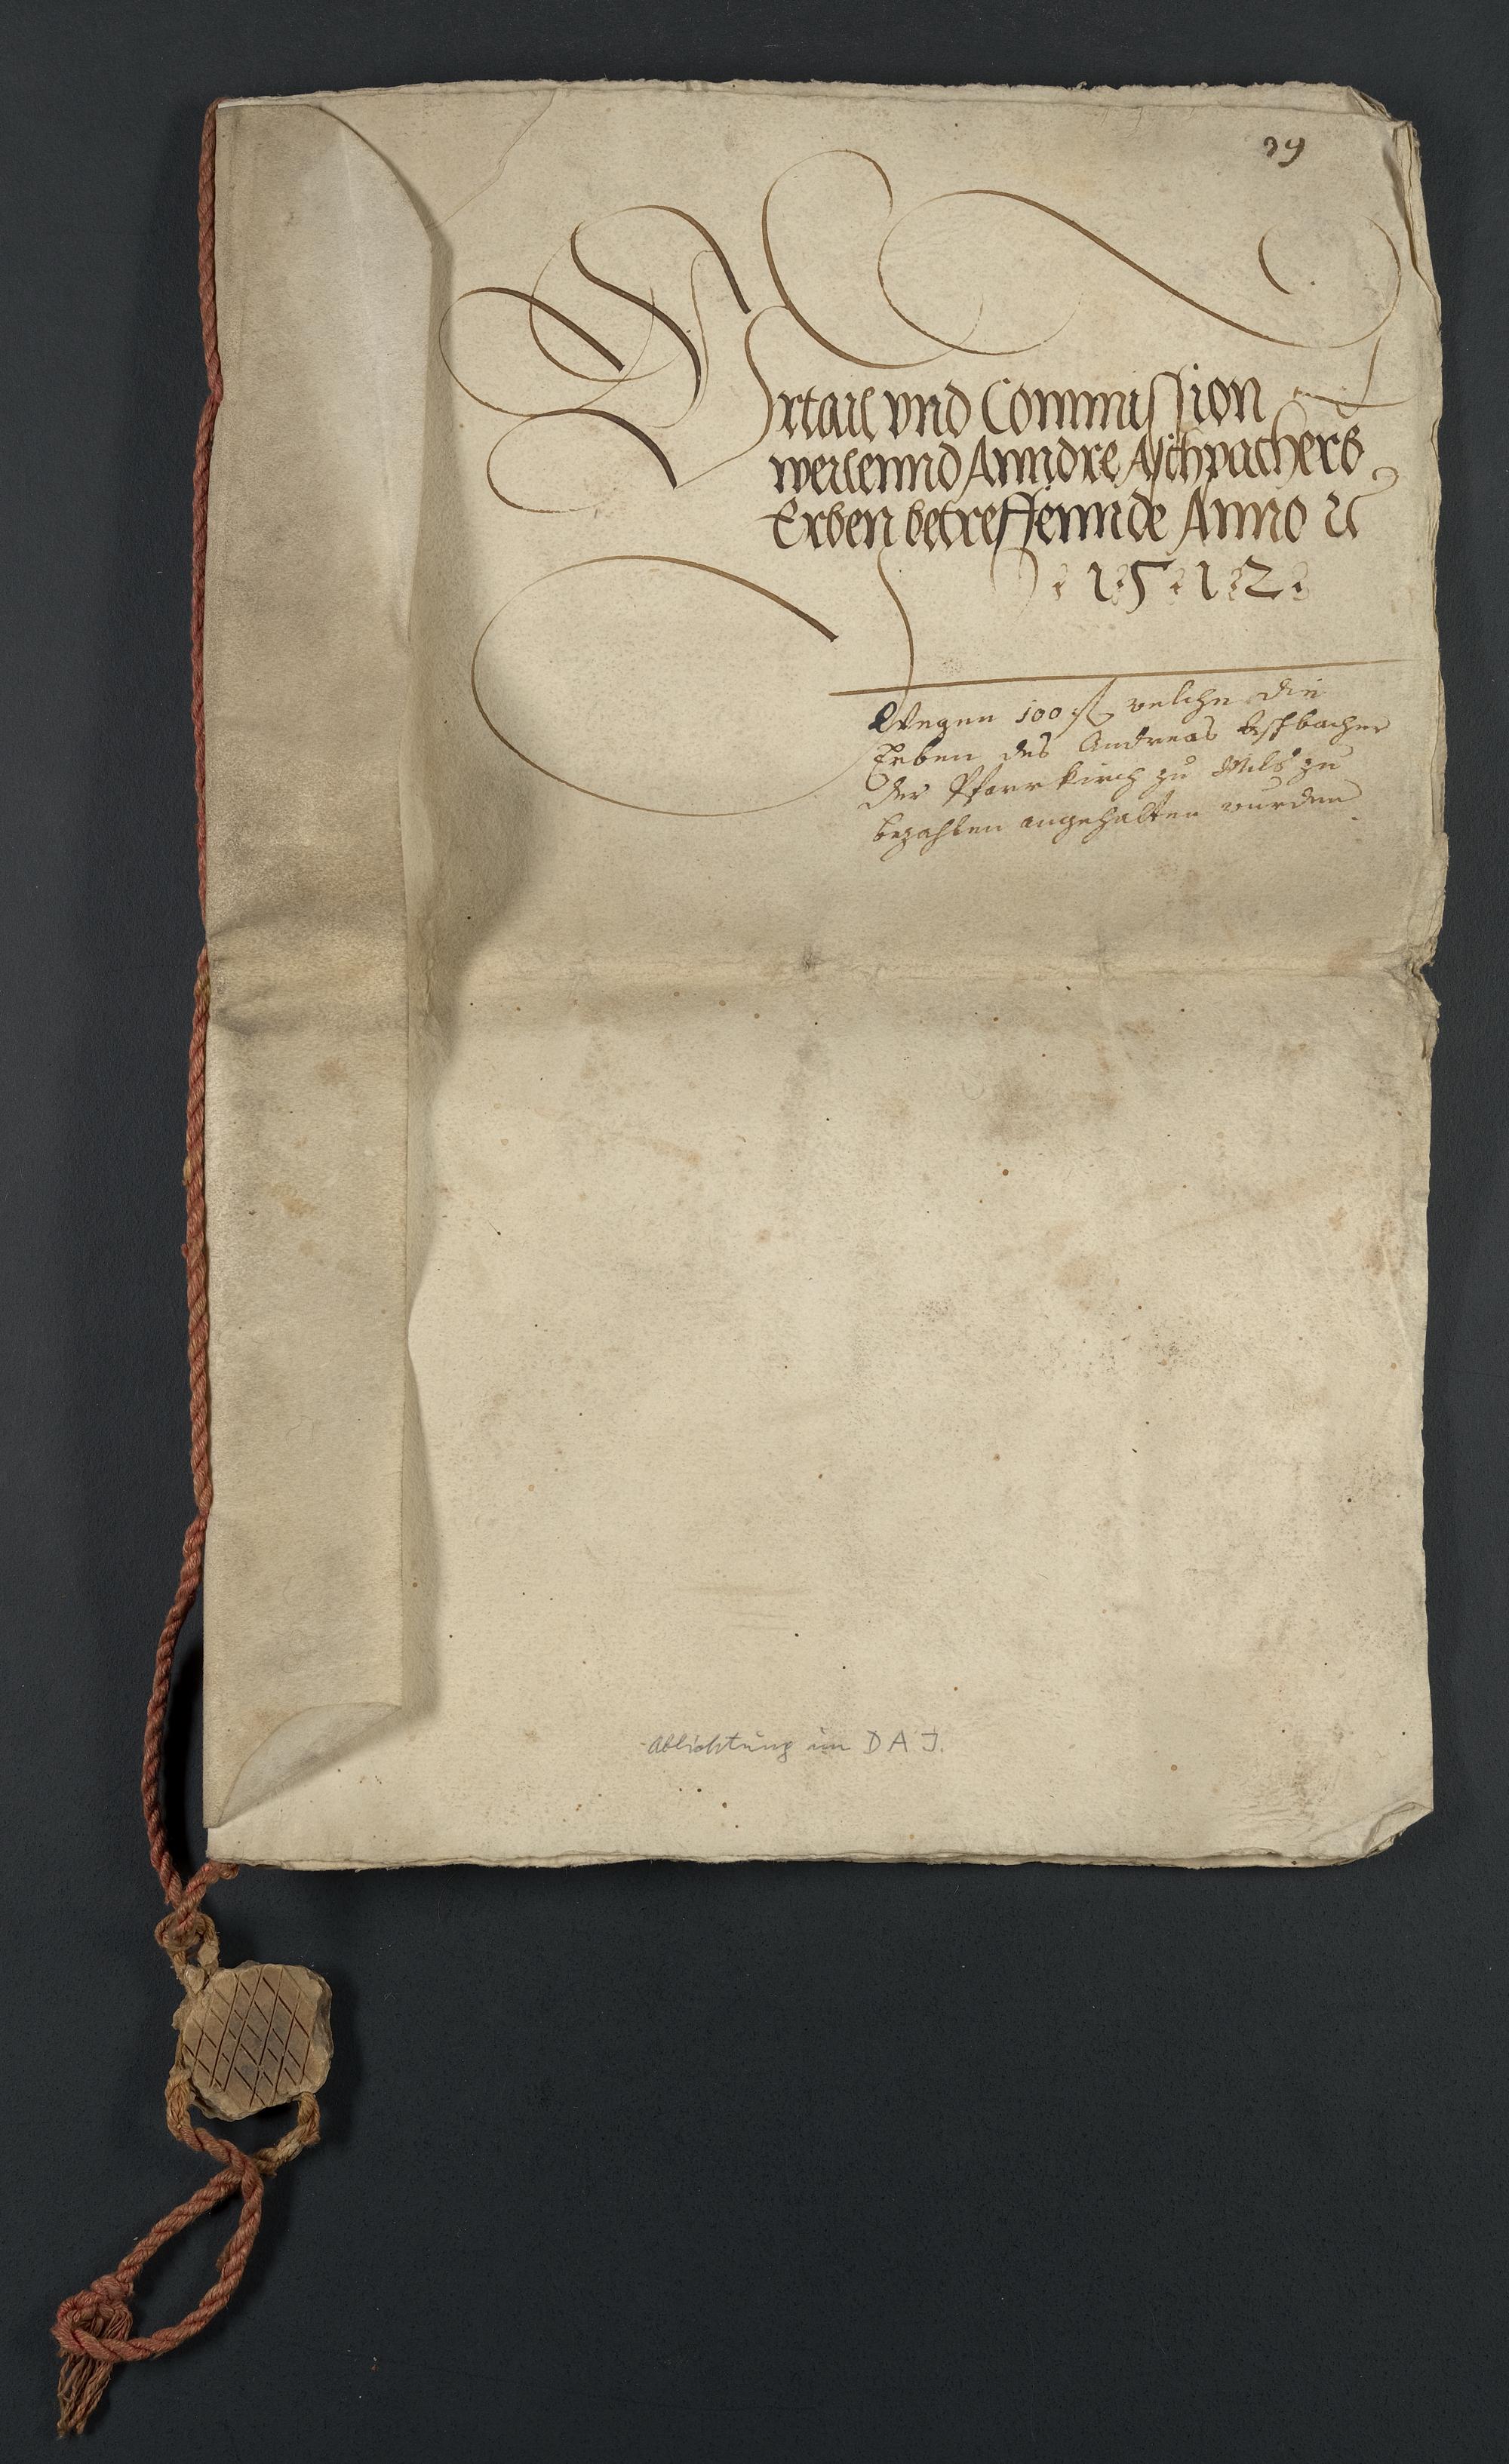 39
Vrtail vnd Commission
weilennd Anndre Aschpachers
Erben betreffennde Anno rc
1512
Wegen 100 fl welche die
Erben des Andreas Aschbacher
der Pfarrkirch zu Mils zu
bezahlen angehalten wurden
Ablichtung im DAJ.